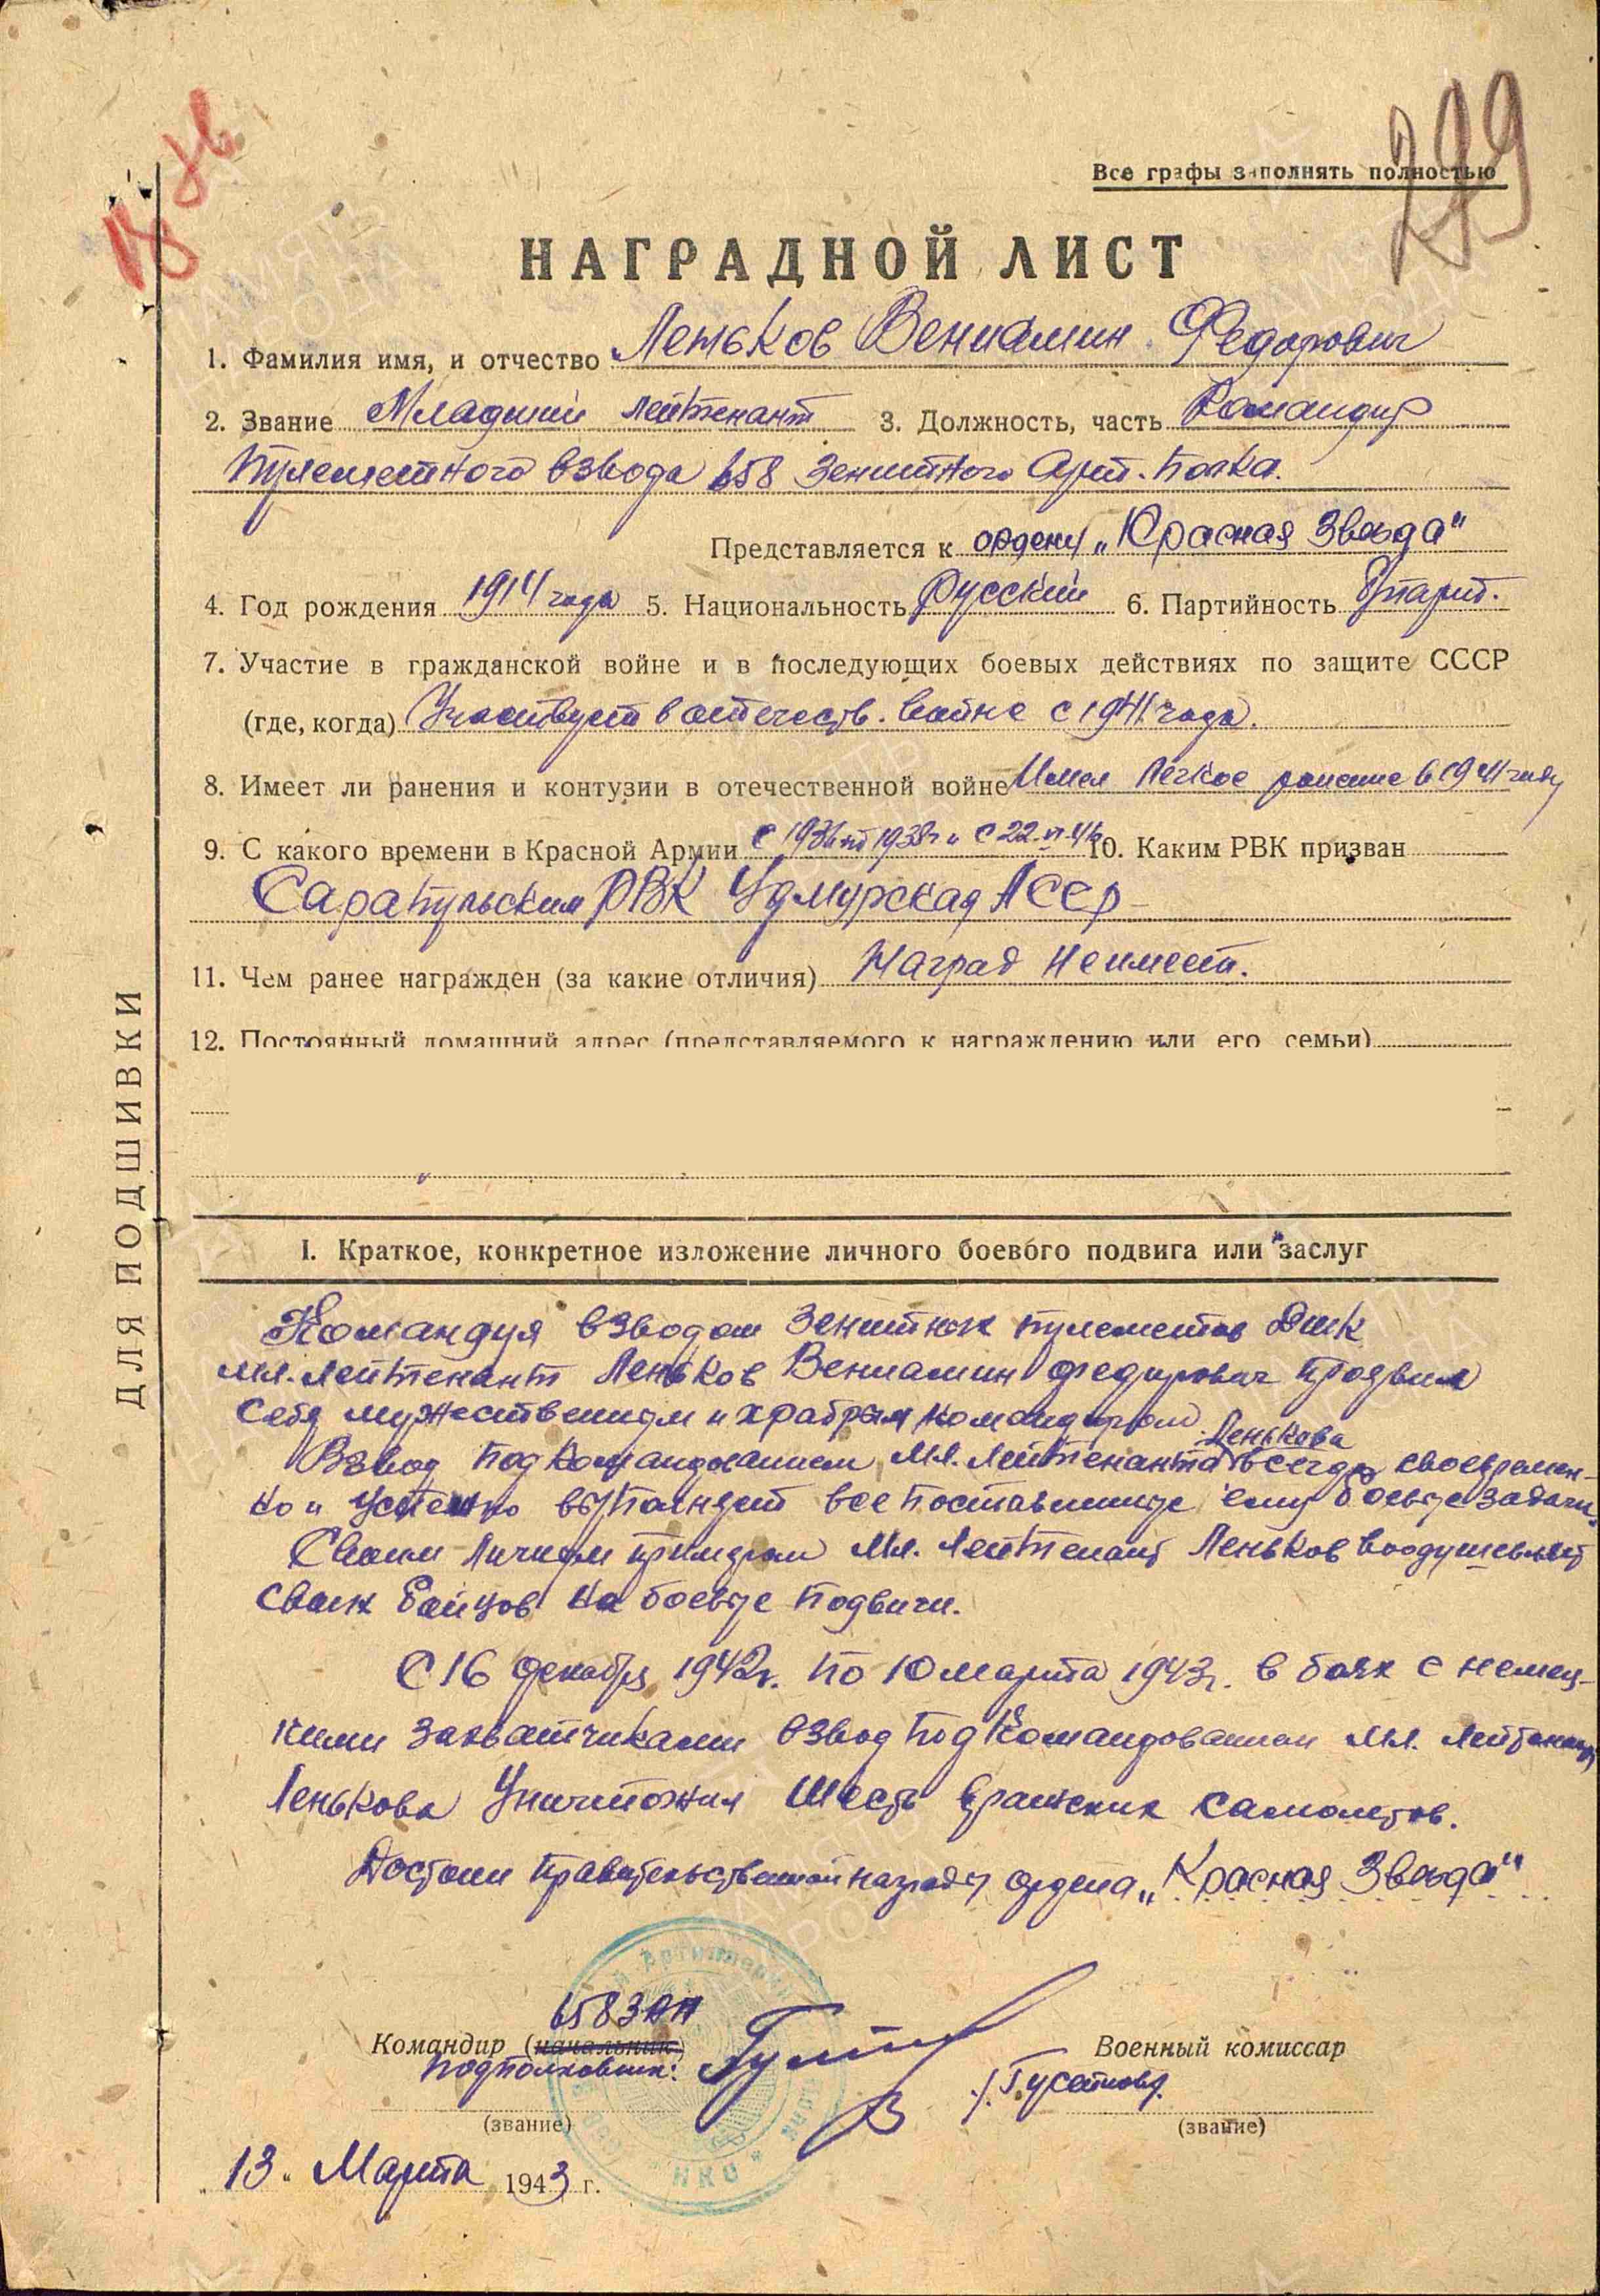 299
Все графы заполнять полностью
НАГРАДНОЙ ЛИСТ
1. Фамилия имя, и отчество Леньков Вениамин Федорович
2. Звание Младший лейтенант 3. Должность, часть Командир
пулеметного взвода 658 Зенитного Арт. Полка.
Представляется к ордену „Красная Звезда"
4. Год рождения 1914 года 5. Национальность Русский 6. Партийность б/парт.
7. Участие в гражданской войне и в последующих боевых действиях по защите СССР
(где, когда) Участвует в отечеств. войне с 1941 года.
8. Имеет ли ранения и контузии в отечественной войне Имел легкое ранение в 1941 году
9. С какого времени в Красной Армии с 1936 по 1938г и с 22.VI.41г 10. Каким РВК призван
Сарапульским РВК Удмурская АССР
11. Чем ранее награжден (за какие отличия) Наград не имеет.
12. Постоянный домашний адрес (представляемого к награждению или его семьи)
ДЛЯ ПОДШИВКИ
I. Краткое, конкретное изложение личного боевого подвига или заслуг
Командуя взводом зенитных пулеметов ДШК
мл. лейтенант Леньков Вениамин Федорович проявил
себя мужественным и храбрым командиром.
Взвод под командованием мл. лейтенанта Ленькова всегда своевремен-
но и успешно выполняет все поставленные ему боевые задачи.
Своим личным примером мл. лейтенант Леньков воодушевляет
своих бойцов на боевые подвиги.
С 16 декабря 1942г. по 10 марта 1943г. в боях с немец-
кими захватчиками взвод под командованием мл. лейтенанта
Ленькова уничтожил шесть вражеских самолетов.
Достоин правительственной награды ордена „Красная Звезда"
658 ЗАП
Командир (начальник) Военный комиссар
подполковник:
(звание) (звание)
13 „ Марта 1943 г.
НКО
ПАМЯТЬ НАРОДА